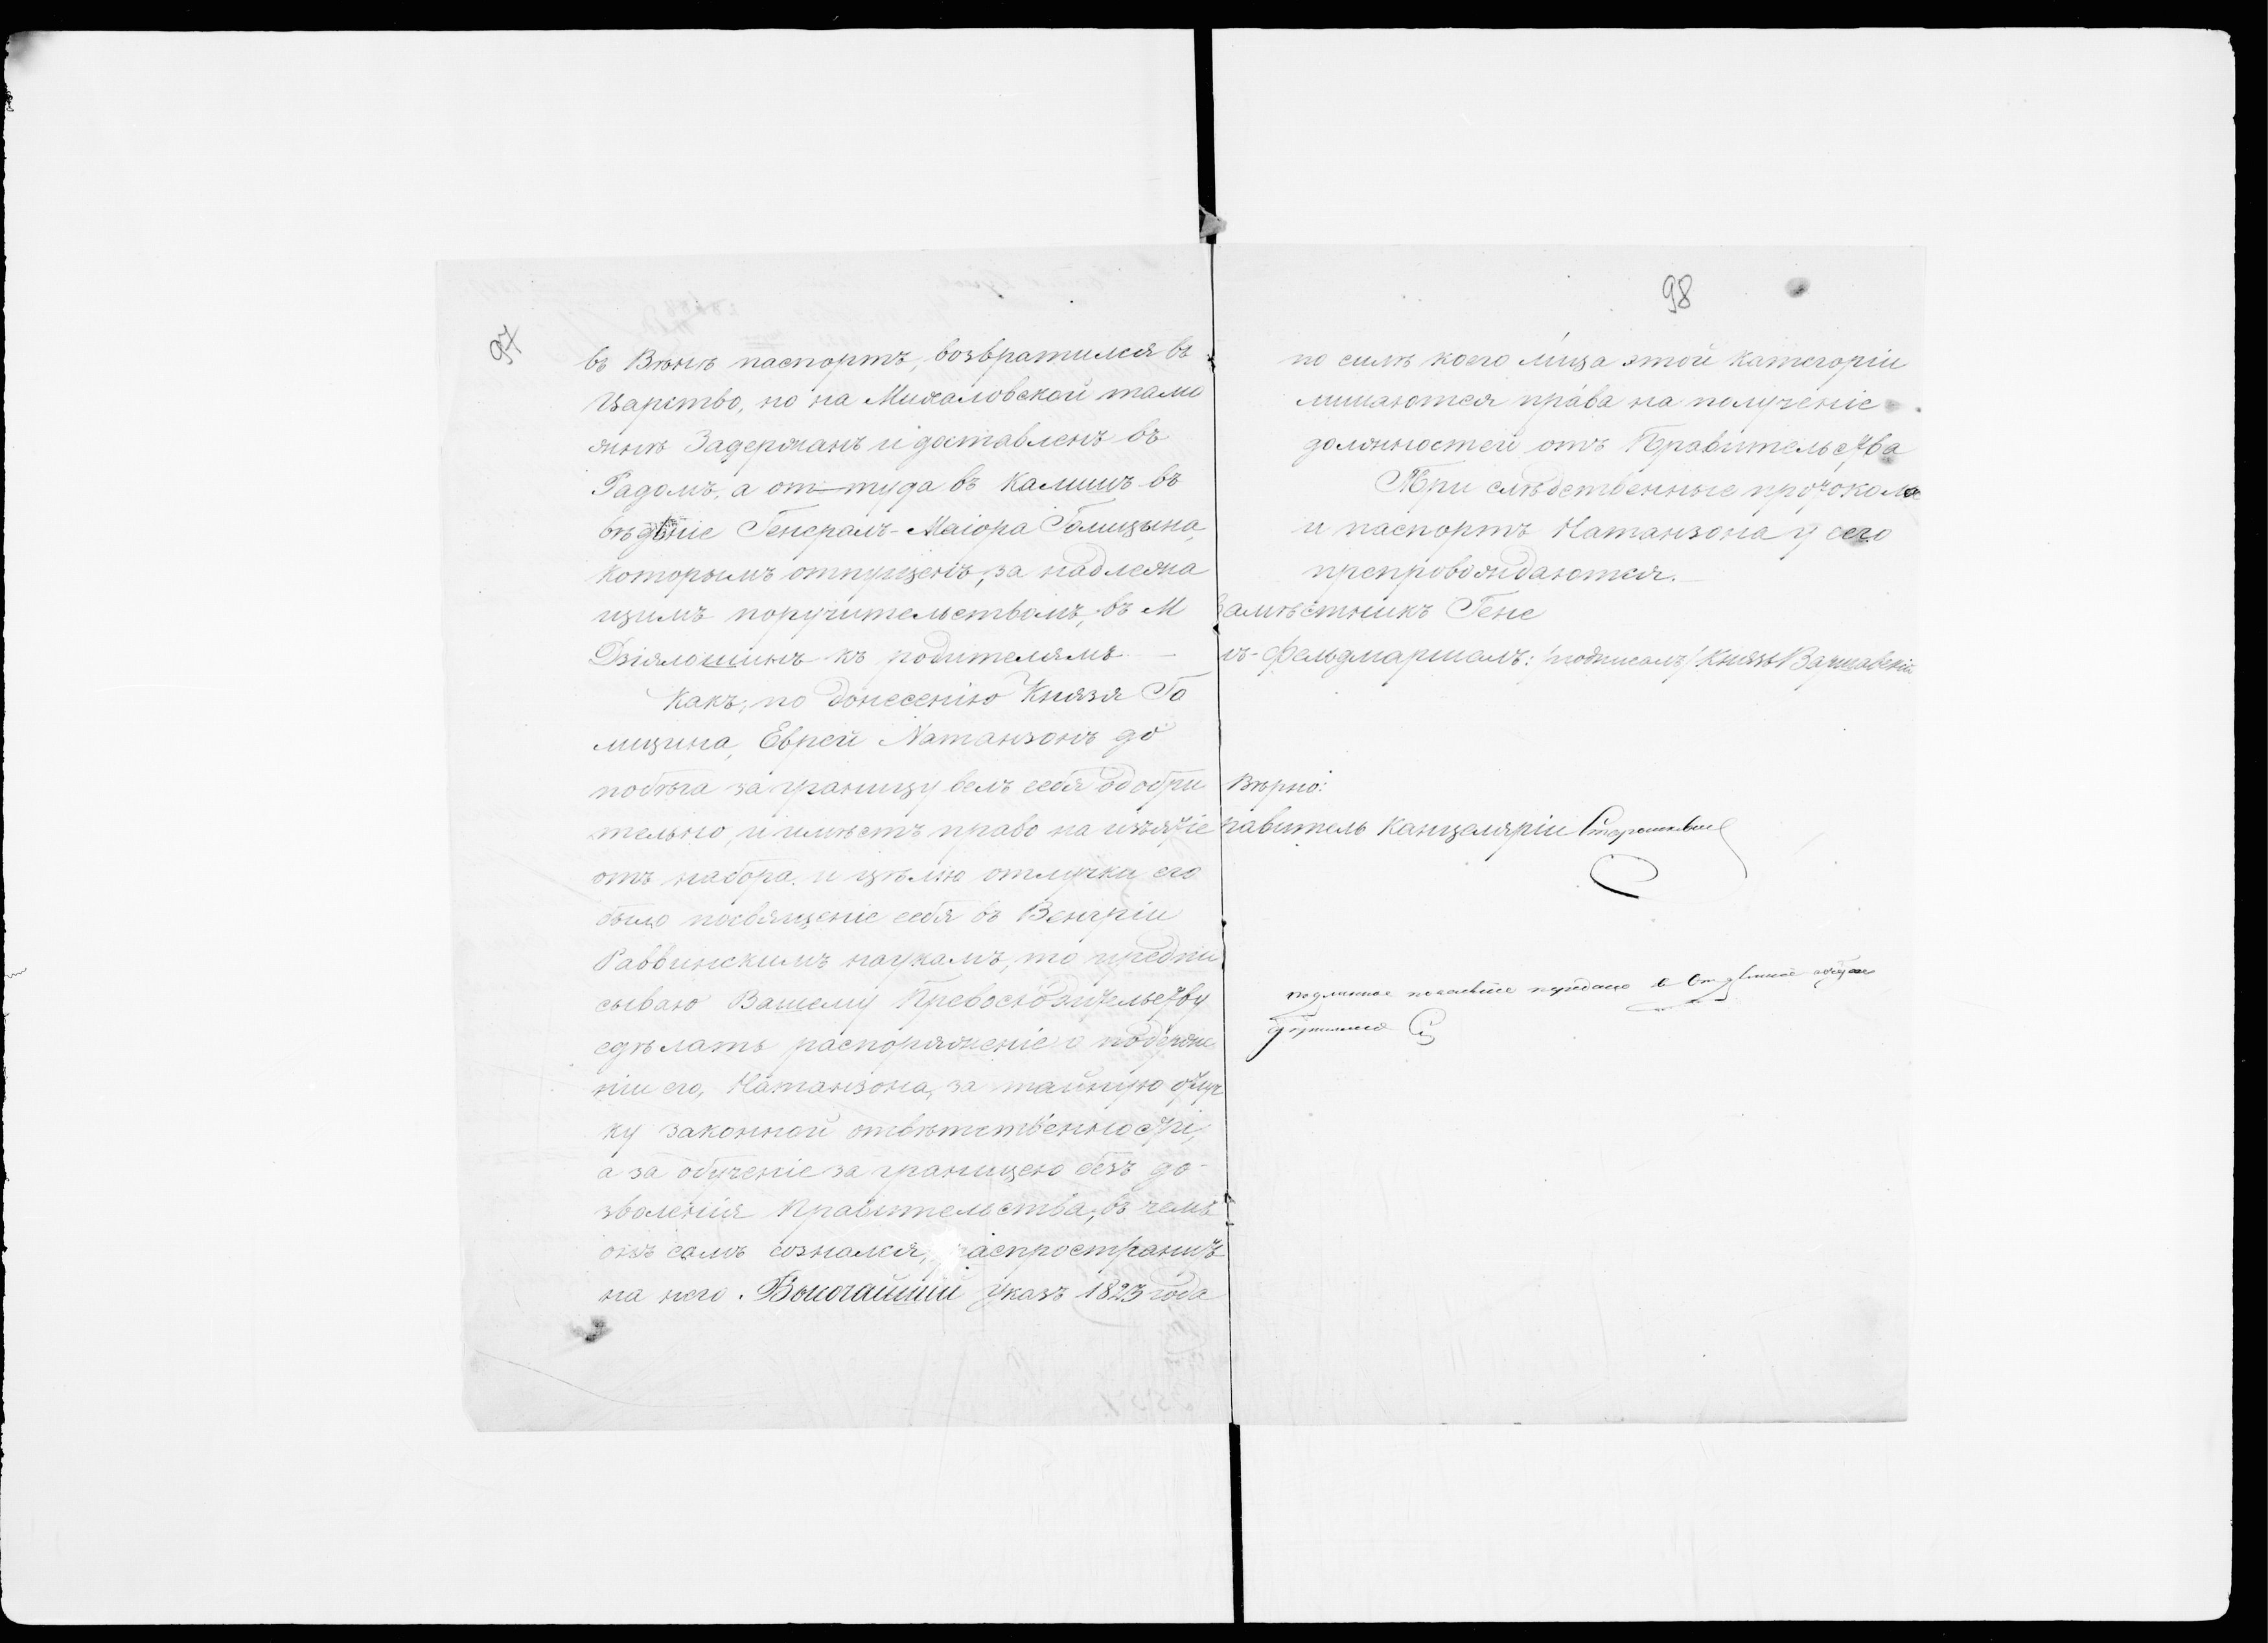 97
въ Вѣнѣ паспортъ, возвратился въ
Царство, но на Михаловской тамо
жнѣ Задержанъ и доставленъ въ
Радомъ, а от-туда въ Калишъ въ
вѣдѣніе Генералъ-Маіора Голицына,
которымъ отпущенъ, за надлежа
щимъ поручительствомъ, въ М
Дзіялошинъ къ родителямъ. —
Какъ, по донесенію Князя Го
лицина, Еврей Натанзонъ до
побѣга за границу велъ себя одобри
тельно, и имѣетъ право на изъятіе
отъ набора. и цѣлію отлучки его
было посвященіе себя въ Венгріи
Раввинскимъ наукамъ, то предпи
сываю Вашему Превосходительству
сдѣлать распоряженіе о подверже
ніи его, Натанзона, за тайную отлуч
ку законной отвѣтственности,
а за обученіе за границею безъ до-
зволенія Правительства, въ чемъ
онъ самъ сознался, распространить
на него Высочайшій Указъ 1823 года
98
по силѣ коего лица этой категоріи
лишаются права на полученіе
должностей отъ Правительства
Три слѣдственные протокола
и паспортъ Натанзона у сего
препровождаются. —
Замѣстникъ Гене
лъ-Фельдмаршалъ: /подписалъ/ Князь Варшавскій
Вѣрно:
равитель Канцеляріи
подлинное передано въ